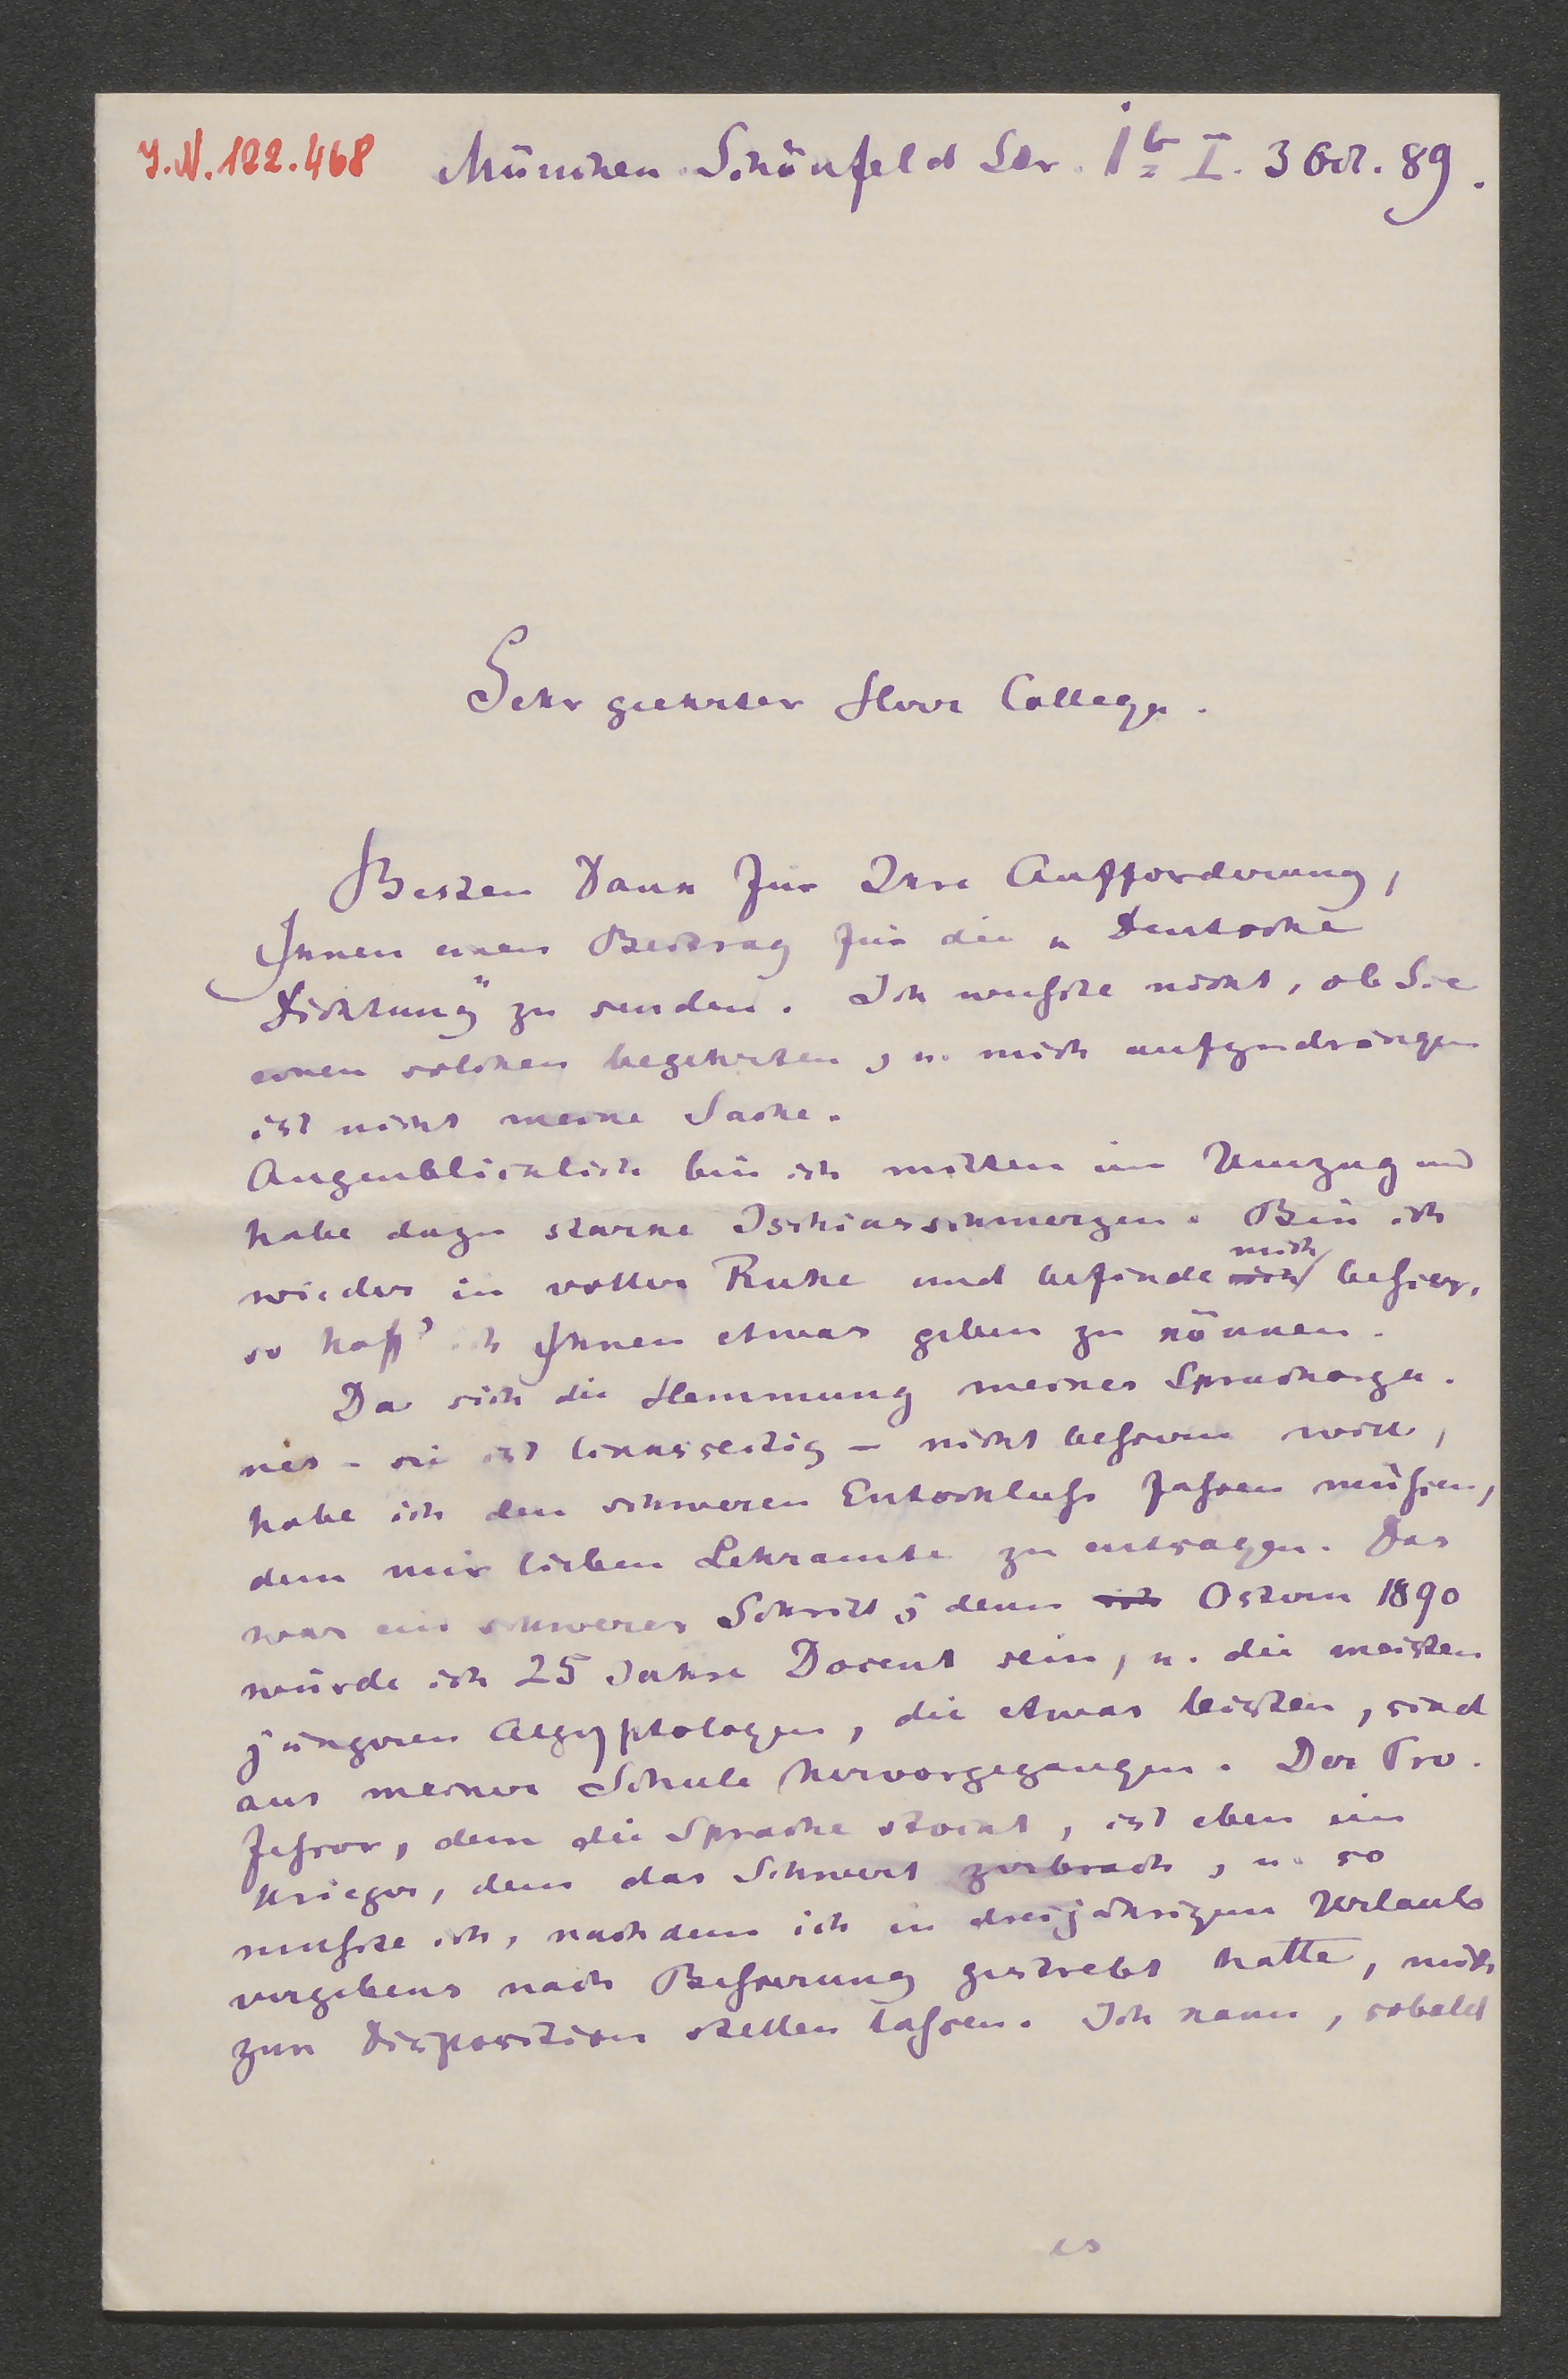 J.N. 122.468
München. Schönfeld Str. 1b I. 3 Oct. 89.
Sehr geehrter Herr College.
Besten Dank für Ihre Aufforderung,
Ihnen einen Beitrag für die „Deutsche
Dichtung" zu senden. Ich wußte nicht, ob Sie
einen solchen begehrten, u. mich aufzudrängen
ist nicht meine Sache.
Augenblicklich bin ich mitten im Umzug und
habe dazu starke Ischiasschmerzen. Bin ich
wieder in voller Ruhe und befinde mich beßer,
so hoff' ich Ihnen etwas geben zu können.
Da sich die Hemmung meines Sprachorga-
nes – sie ist linksseitig – nicht beßern will,
habe ich den schweren Entschluß faßen müßen,
dem mir lieben Lehramte zu entsagen. Das
war ein schwerer Schritt; denn ich Ostern 1890
würde ich 25 Jahre Docent sein, u. die meisten
jüngeren Aegyptologen, die etwas leisten, sind
aus meiner Schule hervorgegangen. Der Pro-
feßor, dem die Sprache stockt, ist eben ein
Krieger, dem das Schwert zerbrach, u. so
mußte ich, nachdem ich in dreijährigem Urlaub
vergebens nach Beßerung gestrebt hatte, mich
zur Disposition stellen laßen. Ich kann, sobald
es